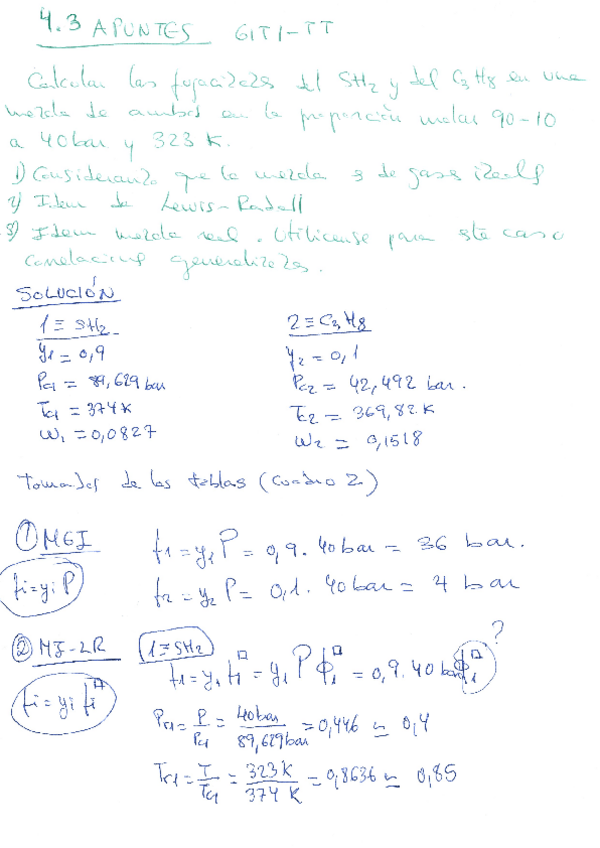 4.3 APUNTES GITI-TT
Calcular las fugacidades del SH₂ y del C₃H₈ en una
mezcla de ambos en la proporción molar 90-10
a 40 bar y 323 K.
1) Considerando que la mezcla es de gases ideales
2) Idem de Lewis-Randall
3) Idem mezcla real. Utilicense para este caso
correlaciones generalizadas.
SOLUCIÓN
1 ≡ SH₂
y₁ = 0,9
Pc₁ = 89,629 bar
Tc₁ = 374 K
ω₁ = 0,0827
2 ≡ C₃H₈
y₂ = 0,1
Pc₂ = 42,492 bar.
Tc₂ = 369,82 K
ω₂ = 0,1518
Tomados de las tablas (Cuadro 2)
① MGI f₁ = y₁ P = 0,9 · 40 bar = 36 bar.
fi = yi P f₂ = y₂ P = 0,1 · 40 bar = 4 bar
② MI-LR 1 ≡ SH₂ f₁ = y₁ f₁□ = y₁ P ϕ₁□ = 0,9 · 40 bar ϕ₁□ ?
fi = yi fi□
Pr₁ = P/Pc₁ = 40 bar/89,629 bar = 0,446 ≃ 0,4
Tr₁ = T/Tc₁ = 323 K/374 K = 0,8636 ≃ 0,85